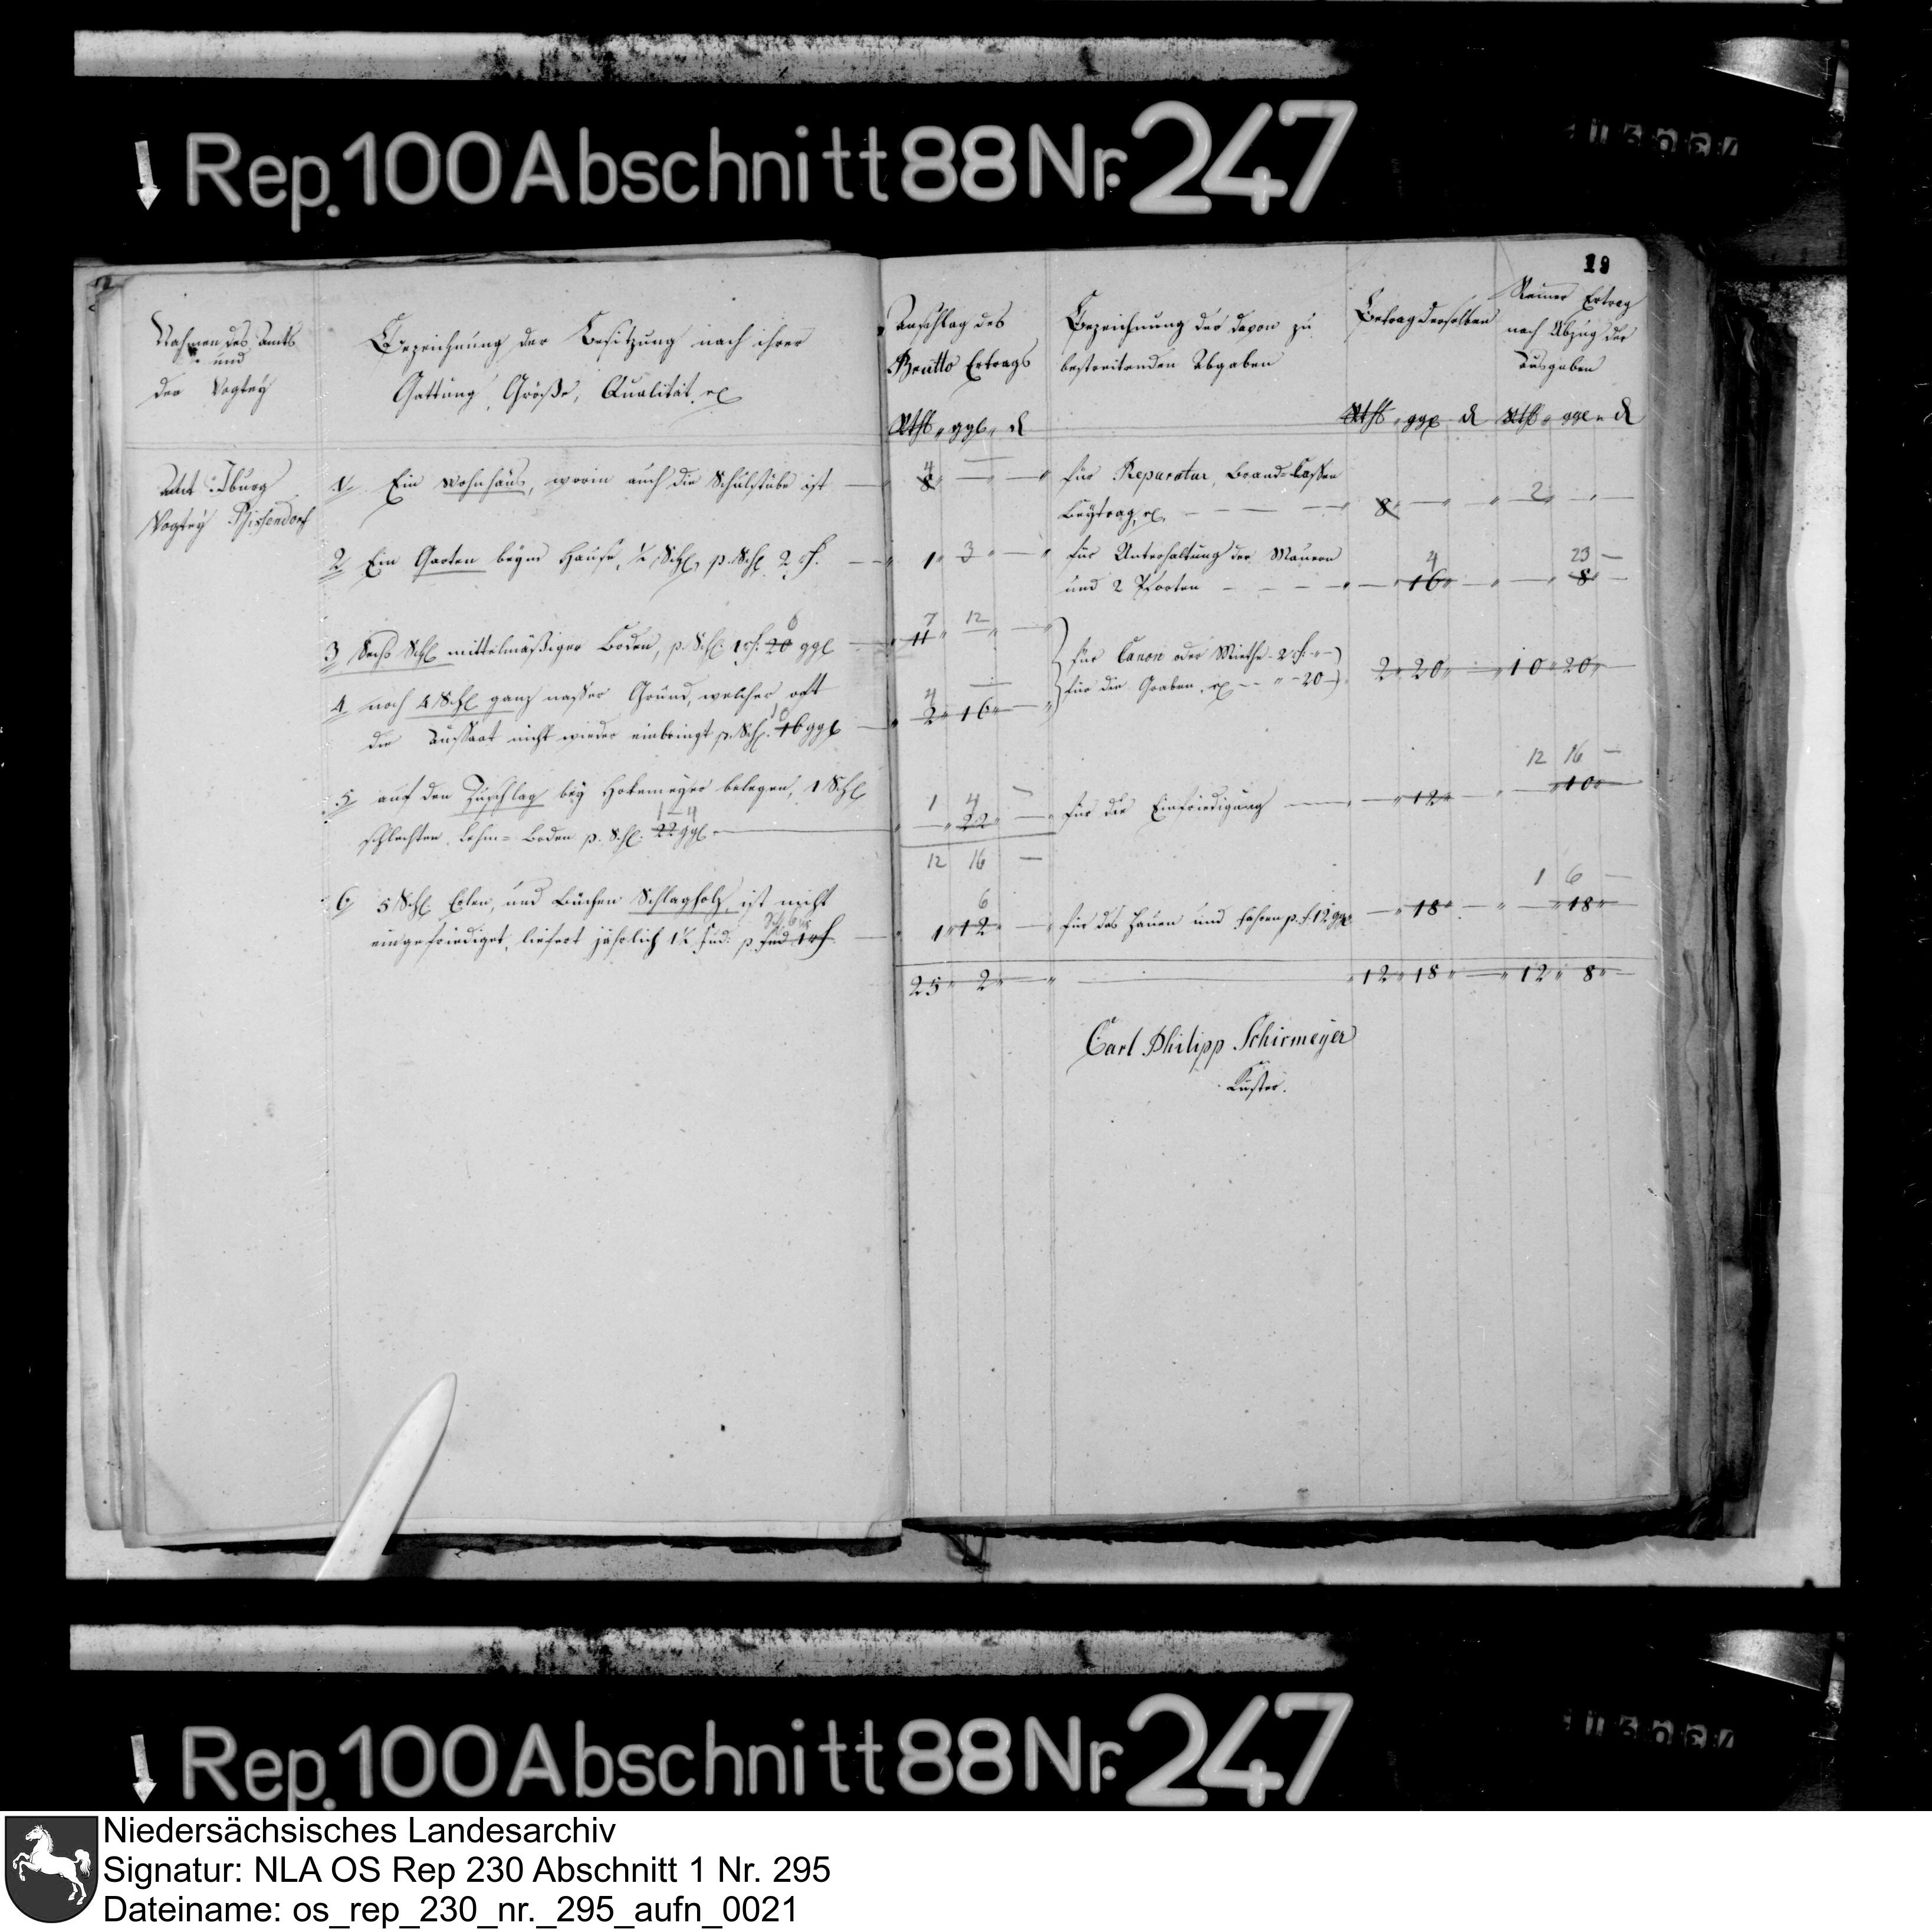 Rep. 100 Abschnitt 88 Nr. 247
19
Nahmen des Amts
und
der Vogtey
Bezeichnung der Besitzung nach ihrer
Gattung, Größe, Qualität, rc
Anschlag des
Brutto Ertrags
Rthl. ggl. d
Bezeichnung der davon zu
bestreitenden Abgaben
Betrag derselben
Rthl. ggl. d
Reiner Ertrag
nach Abzug der
Ausgaben
Rthl. ggl. d
Amt Iburg
Vogtey Bissendorf
1. Ein Wohnhaus, worin auch die Schulstube ist
4
8 — —
für Reparatur, Brand-Cassen
Beytrag, rc. — — — 8 — — 2 — —
2 Ein Garten beym Hause, ½ Schl, p. Schl. 2 rf. — 1 3 —
für Unterhaltung der Mauern
und 2 Pforten — — —
4
16
23 —
8 —
3 Sechs Schl mittelmäßiger Boden, p. Schl. 1 rf. 20 ggl
6
7 12
11 — —
4 noch 4 Schl ganz nasser Grund, welcher oft
die Aussaat nicht wieder einbringt p. Schl. 16 ggl
4 —
2 16 —
für Canon oder Miethe 2 rf. —
für die Graben, rc — 20
2 20 — 10 20 —
5 auf den Zuschlag bey Hokemeyer belegen, 1 Schl
1 - 4
schlechten Lehm-Boden p. Schl. 22 ggl.
1 4 —
— 22 —
für die Einfriedigung — 12 —
12 16 —
10
12 16 —
6 5 Schl. Elen, und Buchen Schlagholz, ist nicht
eingefriediget, liefert jährlich 1½ Fud. p. Fud. 1 rf
6
1 12 —
für das Hauen und Fahren p. f 12 ggl — 18 —
1 6 —
18
25 2 — 12 18 — 12 8 —
Carl Philipp Schirmeyer
Küster.
Rep. 100 Abschnitt 88 Nr. 247
Niedersächsisches Landesarchiv
Signatur: NLA OS Rep 230 Abschnitt 1 Nr. 295
Dateiname: os_rep_230_nr._295_aufn_0021